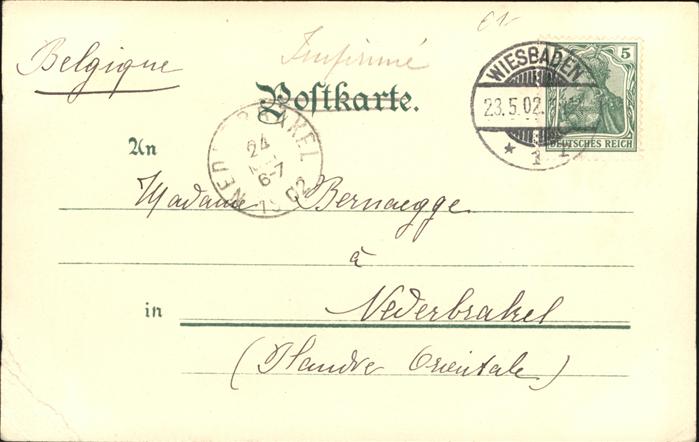 €1-
Belgique
Imprimé
Postkarte.
WIESBADEN
23.5.02.
* 1
5
DEUTSCHES REICH
BRAKEL
24
6-7
1902
An
Madame Bernaegge
à
in
Nederbrakel
(Flandre Orientale)